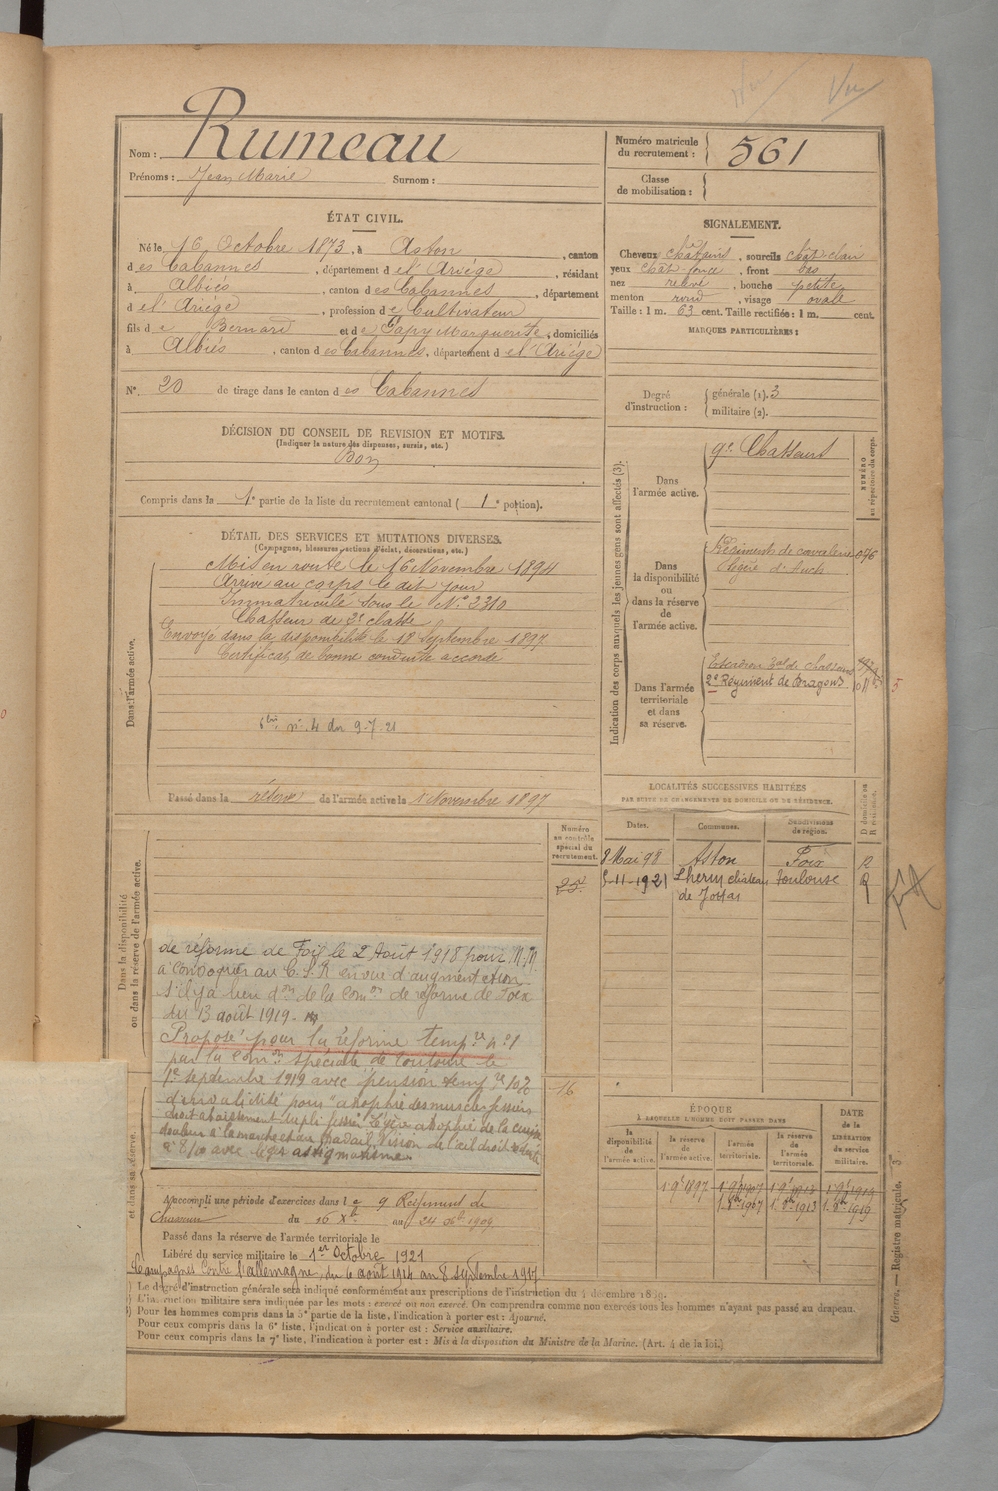 Vu
Nom : Rumeau
Prénoms : Jean Marie Surnom :
Numéro matricule du recrutement : 561
Classe de mobilisation :
ÉTAT CIVIL.
Né le 16 Octobre 1873, à Aston, canton
d es Cabannes, département d e l'Ariége, résidant
à Albiès, canton d es Cabannes, département
d e l'Ariége, profession d e Cultivateur
fils d e Bernard et d e Gapy Marguerite, domiciliés
à Albiés, canton d es Cabannes, département d e l'Ariége
N° 20 de tirage dans le canton d es Cabannes
SIGNALEMENT.
Cheveux châtains, sourcils chât clair
yeux chât foncé, front bas
nez relevé, bouche petite
menton rond, visage ovale
Taille : 1 m. 63 cent. Taille rectifiée : 1 m. cent.
MARQUES PARTICULIÈRES :
Degré d'instruction : générale (1). 3
militaire (2).
DÉCISION DU CONSEIL DE REVISION ET MOTIFS.
(Indiquer la nature des dispenses, sursis, etc.)
Bon
Compris dans la 1e partie de la liste du recrutement cantonal ( 1e portion).
DÉTAIL DES SERVICES ET MUTATIONS DIVERSES.
(Campagnes, blessures, actions d'éclat, décorations, etc.)
Dans l'armée active.
Mis en route le 16 Novembre 1894
Arrivé au corps le dit jour
Immatriculé sous le N° 2310
Chasseur de 2e classe
Envoyé dans la disponibilité le 18 Septembre 1897
Certificat de bonne conduite accordé
n° 4 du 9-7-21
Passé dans la réserve de l'armée active le 1 Novembre 1897
Indication des corps auxquels les jeunes gens sont affectés (3).
NUMÉRO au répertoire du corps.
Dans l'armée active.
9e Chasseurs
Dans la disponibilité ou dans la réserve de l'armée active.
Régiments de cavalerie 076
légère d'Auch
Dans l'armée territoriale et dans sa réserve.
Escadron Bal de chasseurs
2e Régiment de Dragons
5
LOCALITÉS SUCCESSIVES HABITÉES
PAR SUITE DE CHANGEMENTS DE DOMICILE OU DE RÉSIDENCE.
Dates. Communes. Subdivisions de région. D domicile ou R résidence.
8 Mai 98 Aston Foix R
5-11-1921 Lherm château Toulouse R
de Jottas
Numéro au contrôle spécial du recrutement.
25
16
Dans la disponibilité ou dans la réserve de l'armée active.
de réforme de Foix le 2 Août 1918 pour M.M.
à convoquer au C.S.R en vue d'augmentation
s'il y a lieu don de la Comon de réforme de Foix
du 13 août 1919.
Proposé pour la réforme tempre n°1
par la Comon spéciale de Toulouse le
1er septembre 1919 avec pension tempre 10%
d'invalidité pour "atrophie des muscles fessiers
droit abaissement du pli fessier légère atrophie de la cuisse
douleur à la marche et au travail, vision de l'œil droit réduite
à 8/10 avec léger astigmatisme.
A accompli une période d'exercices dans l e 9 Régiment de
Chasseurs du 16 Xbre au 24 1909
Passé dans la réserve de l'armée territoriale le
Libéré du service militaire le 1er Octobre 1921
Campagnes contre l'allemagne, du 6 août 1914 au 8 septembre 1917
ÉPOQUE
À LAQUELLE L'HOMME DOIT PASSER DANS
la disponibilité de l'armée active. la réserve de l'armée active. l'armée territoriale. la réserve de l'armée territoriale. DATE de la LIBÉRATION du service militaire.
1 9e 1897 1 9e 1907 1 9e 1913 1 9e 1919
1 8bre 1907 1 8bre 1913 1 8bre 1919
) Le degré d'instruction générale sera indiqué conformément aux prescriptions de l'instruction du 4 décembre 1889.
) L'instruction militaire sera indiquée par les mots : exercé ou non exercé. On comprendra comme non exercés tous les hommes n'ayant pas passé au drapeau.
) Pour les hommes compris dans la 5e partie de la liste, l'indication à porter est : Ajourné.
Pour ceux compris dans la 6e liste, l'indication à porter est : Service auxiliaire.
Pour ceux compris dans la 7e liste, l'indication à porter est : Mis à la disposition du Ministre de la Marine. (Art. 4 de la loi.)
Guerre. — Registre matricule. 3